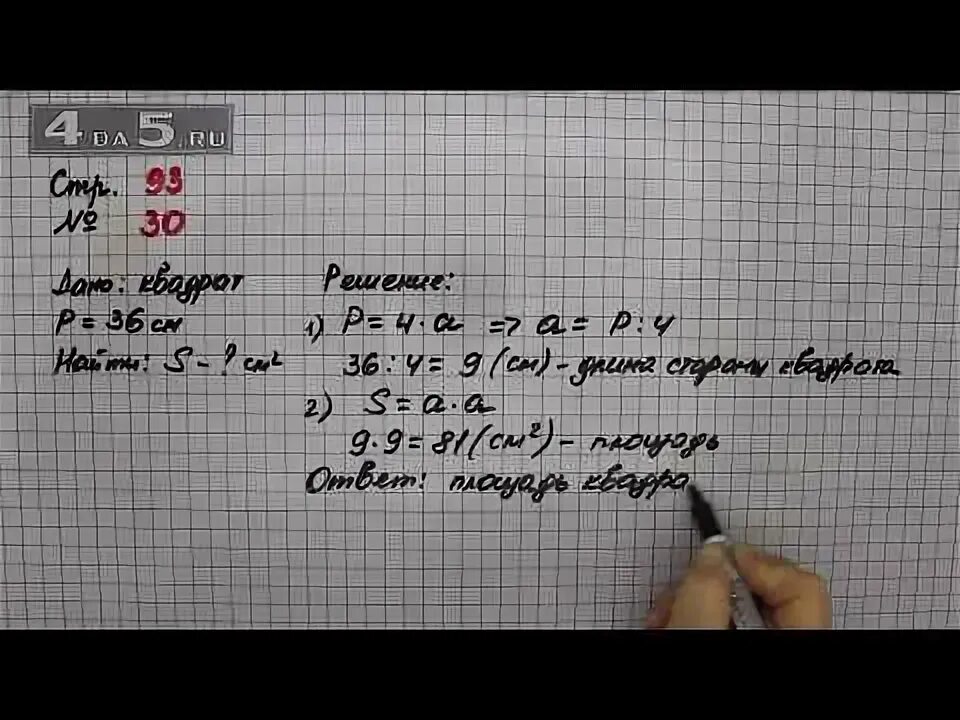 4 DA 5.RU
Стр. 93
№ 30
Дано: квадрат
P = 36 см
Найти: S - ? см²
Решение:
1) P = 4 · a => a = P : 4
36 : 4 = 9 (см) - длина стороны квадрата
2) S = a · a
9 · 9 = 81 (см²) - площадь
Ответ: площадь квадра